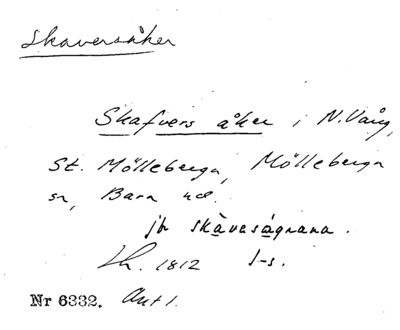 Skaversåker
Skafvers åker i N. Vång,
St. Mölleberga, Mölleberga
sn, Bara hd.
jfr skåvaságrana.
Lh. 1812 I-s.
Nr 6332. Ant 1.